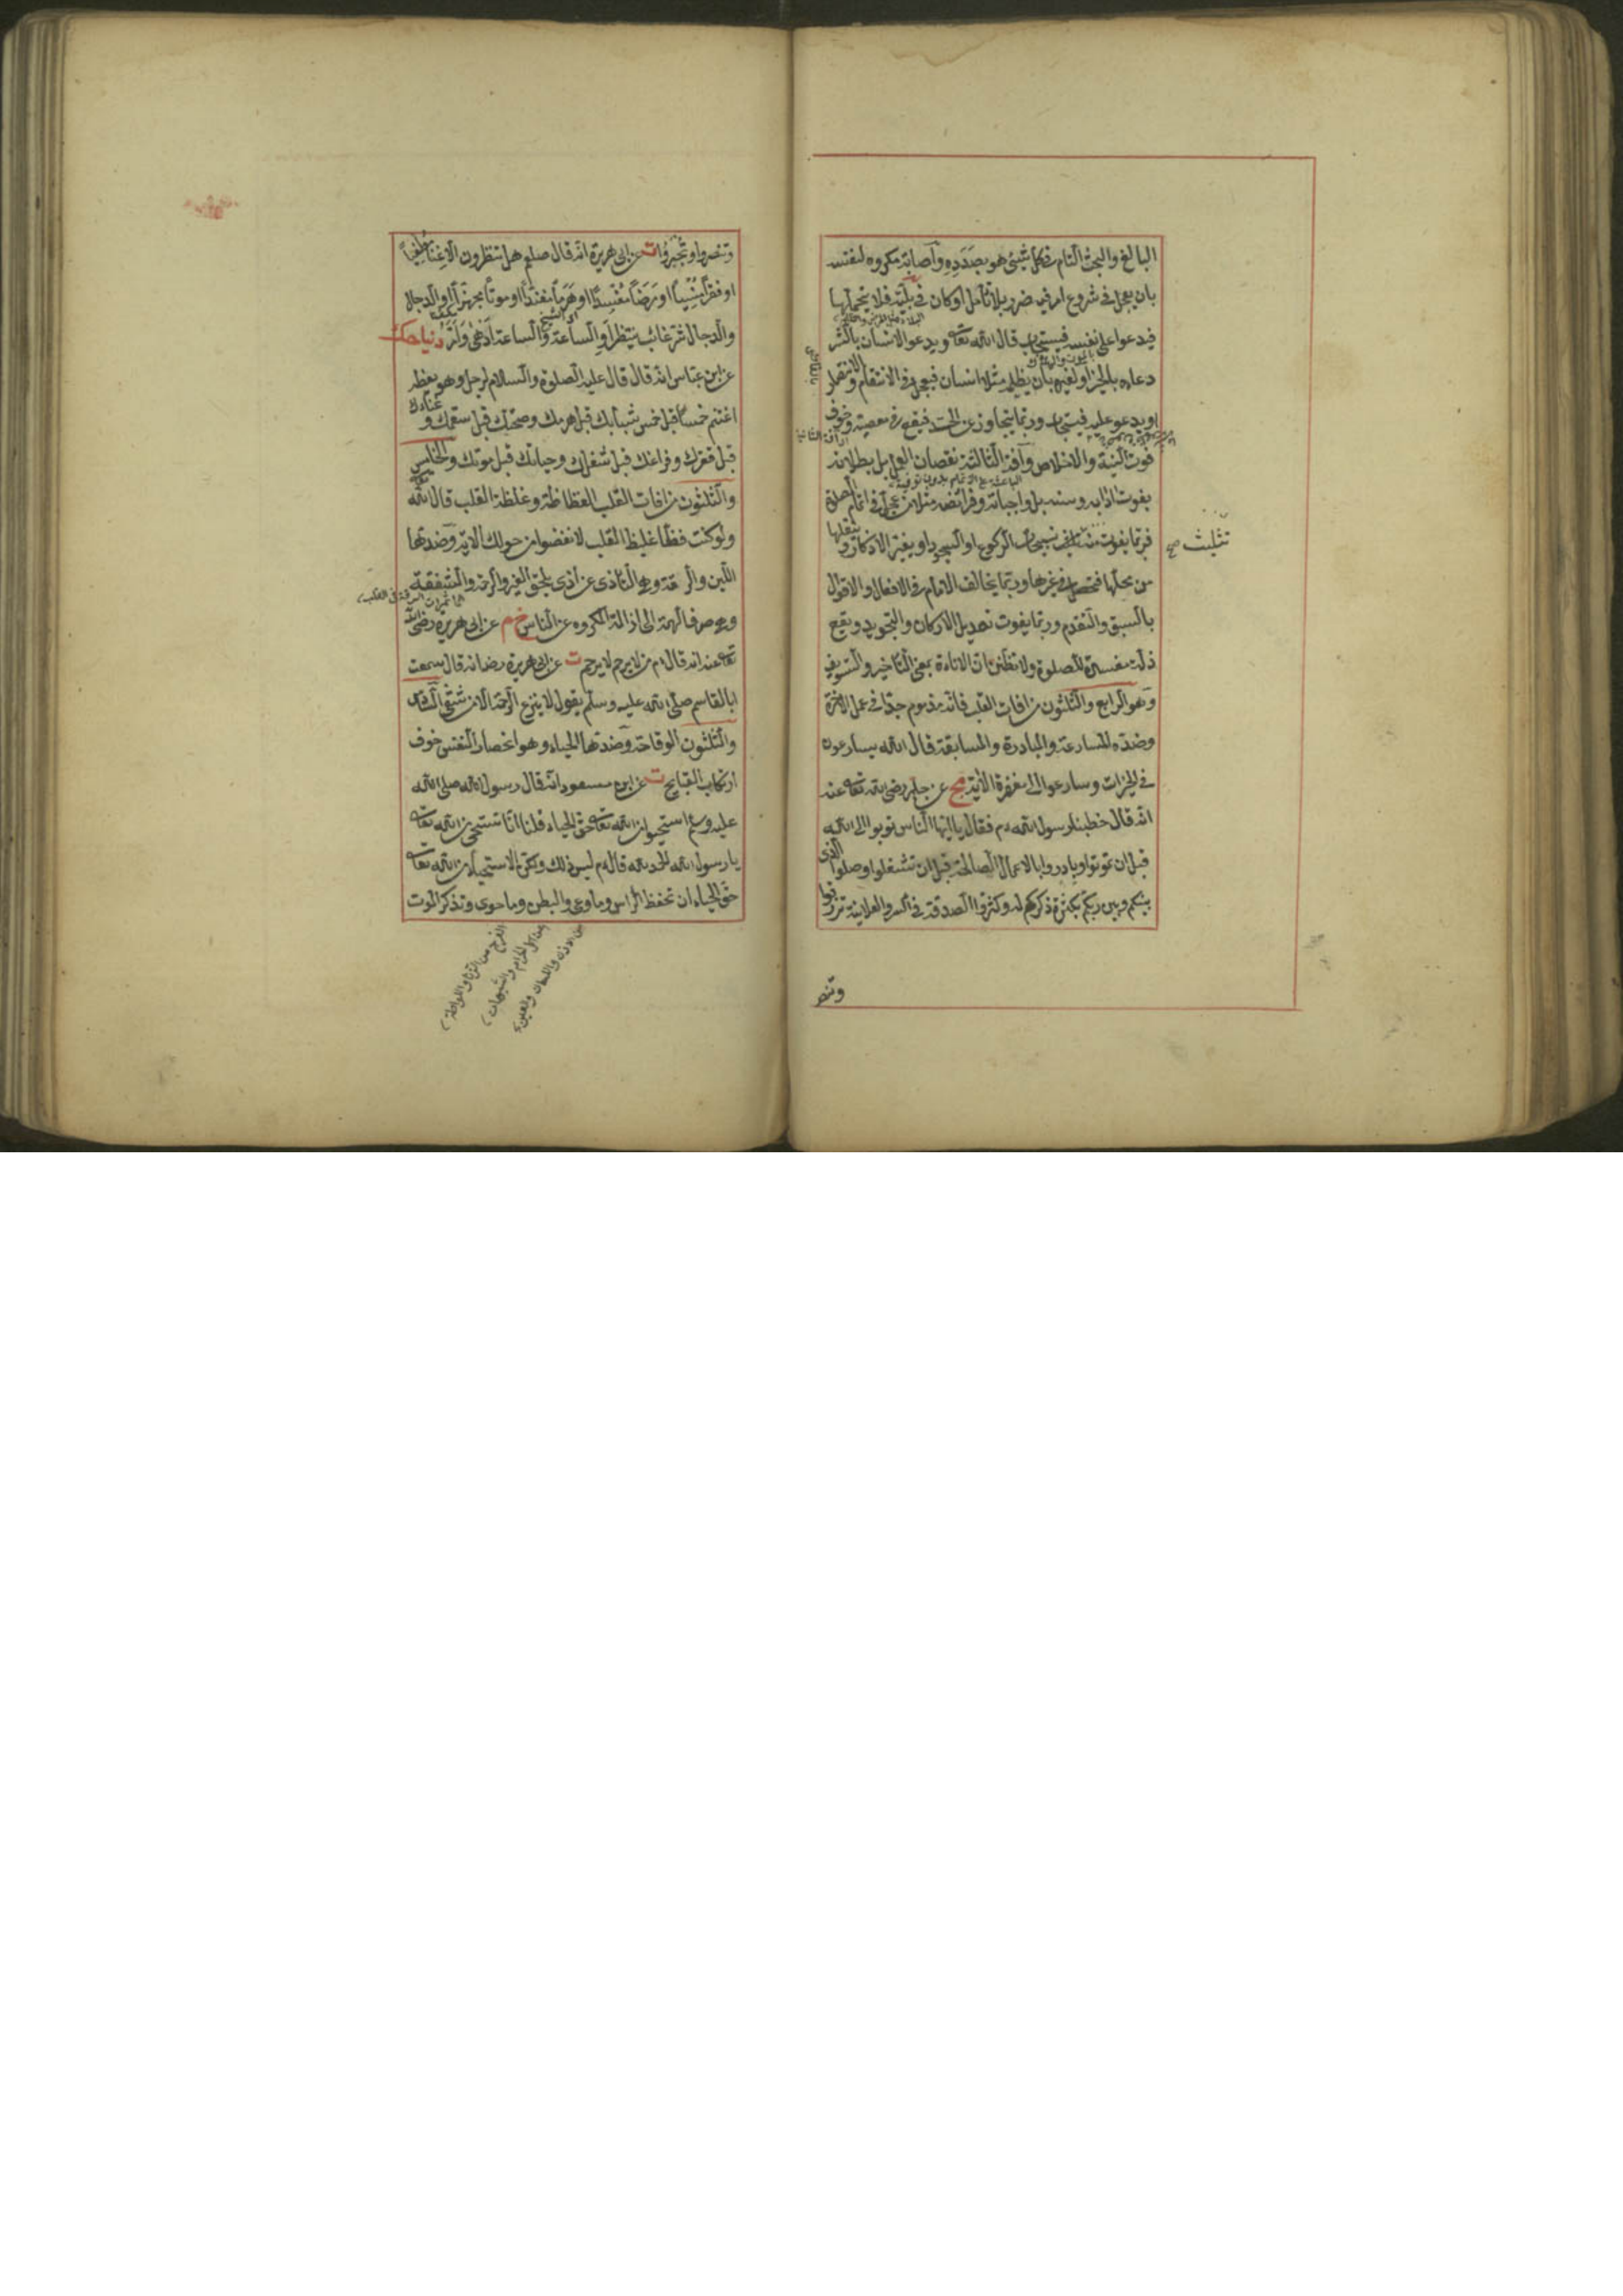 البالغ والبحث التام فى كل شيئ هو بصدده وآصابة مكروه لنفسه
بان يعجل فى شروع امر فيه ضرر بلا تأمل او كان فى بليّة فلا يتحملها
فيدعوا على نفسه فيستجاب قال الله تعا ويدعو الانسان بالشر
دعاءه بالخير او لغيره بان يظلمه مثلا انسان فيعجل فى الانتقام والانتصار
او يدعو عليه فيستجاب وربما يتجاوز عن الحد فيقع فى معصية وخوف
فوت النية والاخلاص وآفته الثالثة نقصان العمل بل بطلانه
بفوت ادابه وسننه بل واجباته وفرائضه مثلا من عجل فى اتمام الصلوة
فربما يفوت منه تسبيحات الركوع او السجود او يغير الاذكار وينقلها
من محلها فتحصل فى غيرها وربما يخالف الامام فى الافعال والاقوال
بالسبق والتقدم وربما يفوت تعديل الاركان والتجويد ويقع
ذلة مفسدة للصلوة ولا تظنن ان الاناءة بمعنى التأخير والتسويف
وهو الرابع والثلثون من افات القلب فانه مذموم جدا فى عمل الاخرة
وضده المسارعة والمبادرة والمسابقة قال الله يسارعون
فى الخيرات وسارعوا الى مغفرة الاية مج عن جابر رضى الله تعا عنه
انه قال خطبنا رسول الله م فقال يا ايها الناس توبوا الى الله
قبل ان تموتوا وبادروا بالاعمال الصالحة قبل ان تشغلوا وصلوا الذى
بينكم وبين ربكم بكثرة ذكركم له وكثرة الصدقة فى السر والعلانية ترزقوا
تثليث صح
وتنصر
وتنصروا وتجبروا ت عن ابى هريرة انه قال صلعم هل تنظرون الا غنا مطغيا
او فقرا منسيا او مرضا مفسدا او هرما مفندا او موتا مجهزا او الدجال
والدجال شر غائب ينتظر او الساعة والساعة ادهى وامر دنيا حك
عن ابن عباس انه قال قال عليه الصلوة والسلام لرجل وهو يعظه
اغتنم خمسا قبل خمس شبابك قبل هرمك وصحتك قبل سقمك و غناءك
قبل فقرك وفراغك قبل شغلك وحياتك قبل موتك والخامس
والثلثون من افات القلب الفظاظة وغلظة القلب قال الله تعا
ولو كنت فظا غليظ القلب لانفضوا من حولك الاية وضدتها
اللين والرقة وهى التأذى عن اذى يلحق الغير والرحمة والشفقة
وهى صرف الهمة الى ازالة المكروه عن الناس خ م عن ابى هريرة رضى الله
تعا عنه انه قال م من لا يرحم لا يرحم ت عن ابى هريرة رض انه قال سمعت
ابا القاسم صلى الله عليه وسلم يقول لا ينزع الرحمة الا من شقى السادس
والثلثون الوقاحة وضدتها الحياء وهو انحصار النفس خوف
ارتكاب القبايح ت عن ابن مسعود انه قال رسول الله صلى الله
عليه وسلم استحيوا من الله تعا حق الحياء قلنا انا نستحيى من الله تعا
يا رسول الله الحمد لله قال م ليس ذلك ولكن الاستحياء من الله تعا
حق الحياء ان تحفظ الرأس وما وعى والبطن وما حوى وتذكر الموت